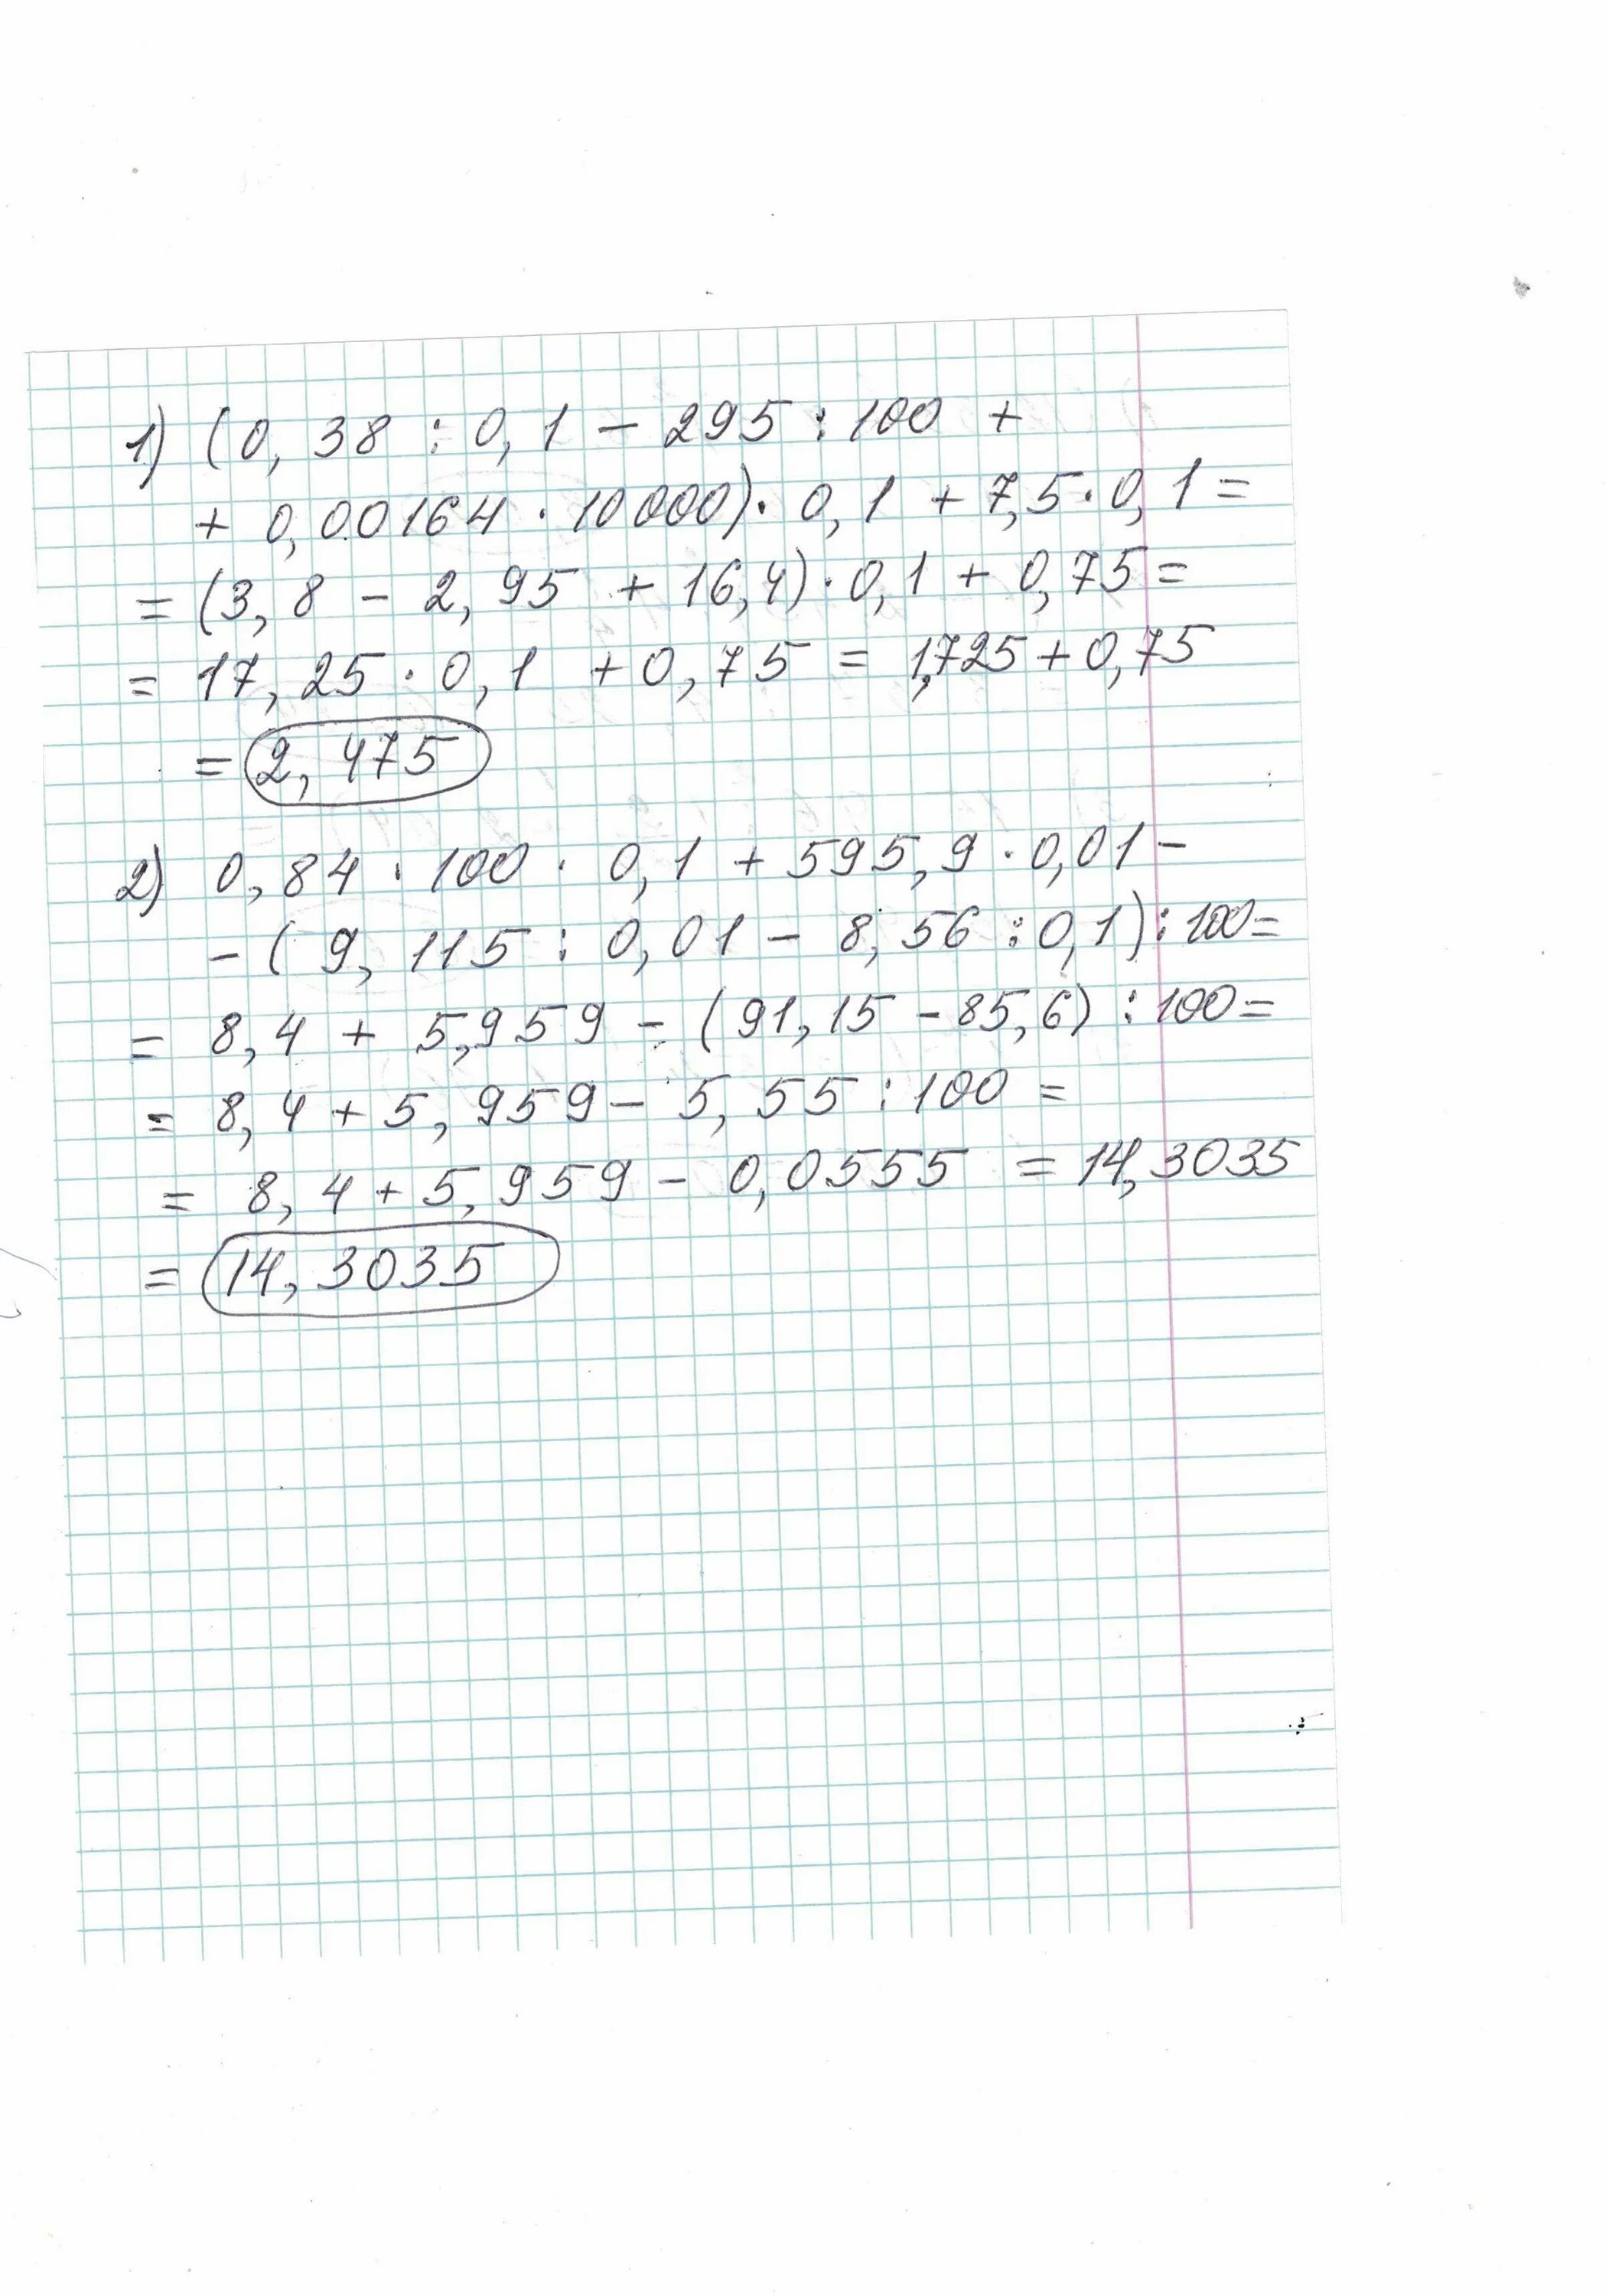 1) (0,38 : 0,1 - 295 : 100 +
+ 0,00164 · 10000) · 0,1 + 7,5 · 0,1 =
= (3,8 - 2,95 + 16,4) · 0,1 + 0,75 =
= 17,25 · 0,1 + 0,75 = 1,725 + 0,75
= 2,475
2) 0,84 · 100 · 0,1 + 595,9 · 0,01 -
- (9,115 : 0,01 - 8,56 : 0,1) : 100 =
= 8,4 + 5,959 - (91,15 - 85,6) : 100 =
= 8,4 + 5,959 - 5,55 : 100 =
= 8,4 + 5,959 - 0,0555 = 14,3035
= 14,3035